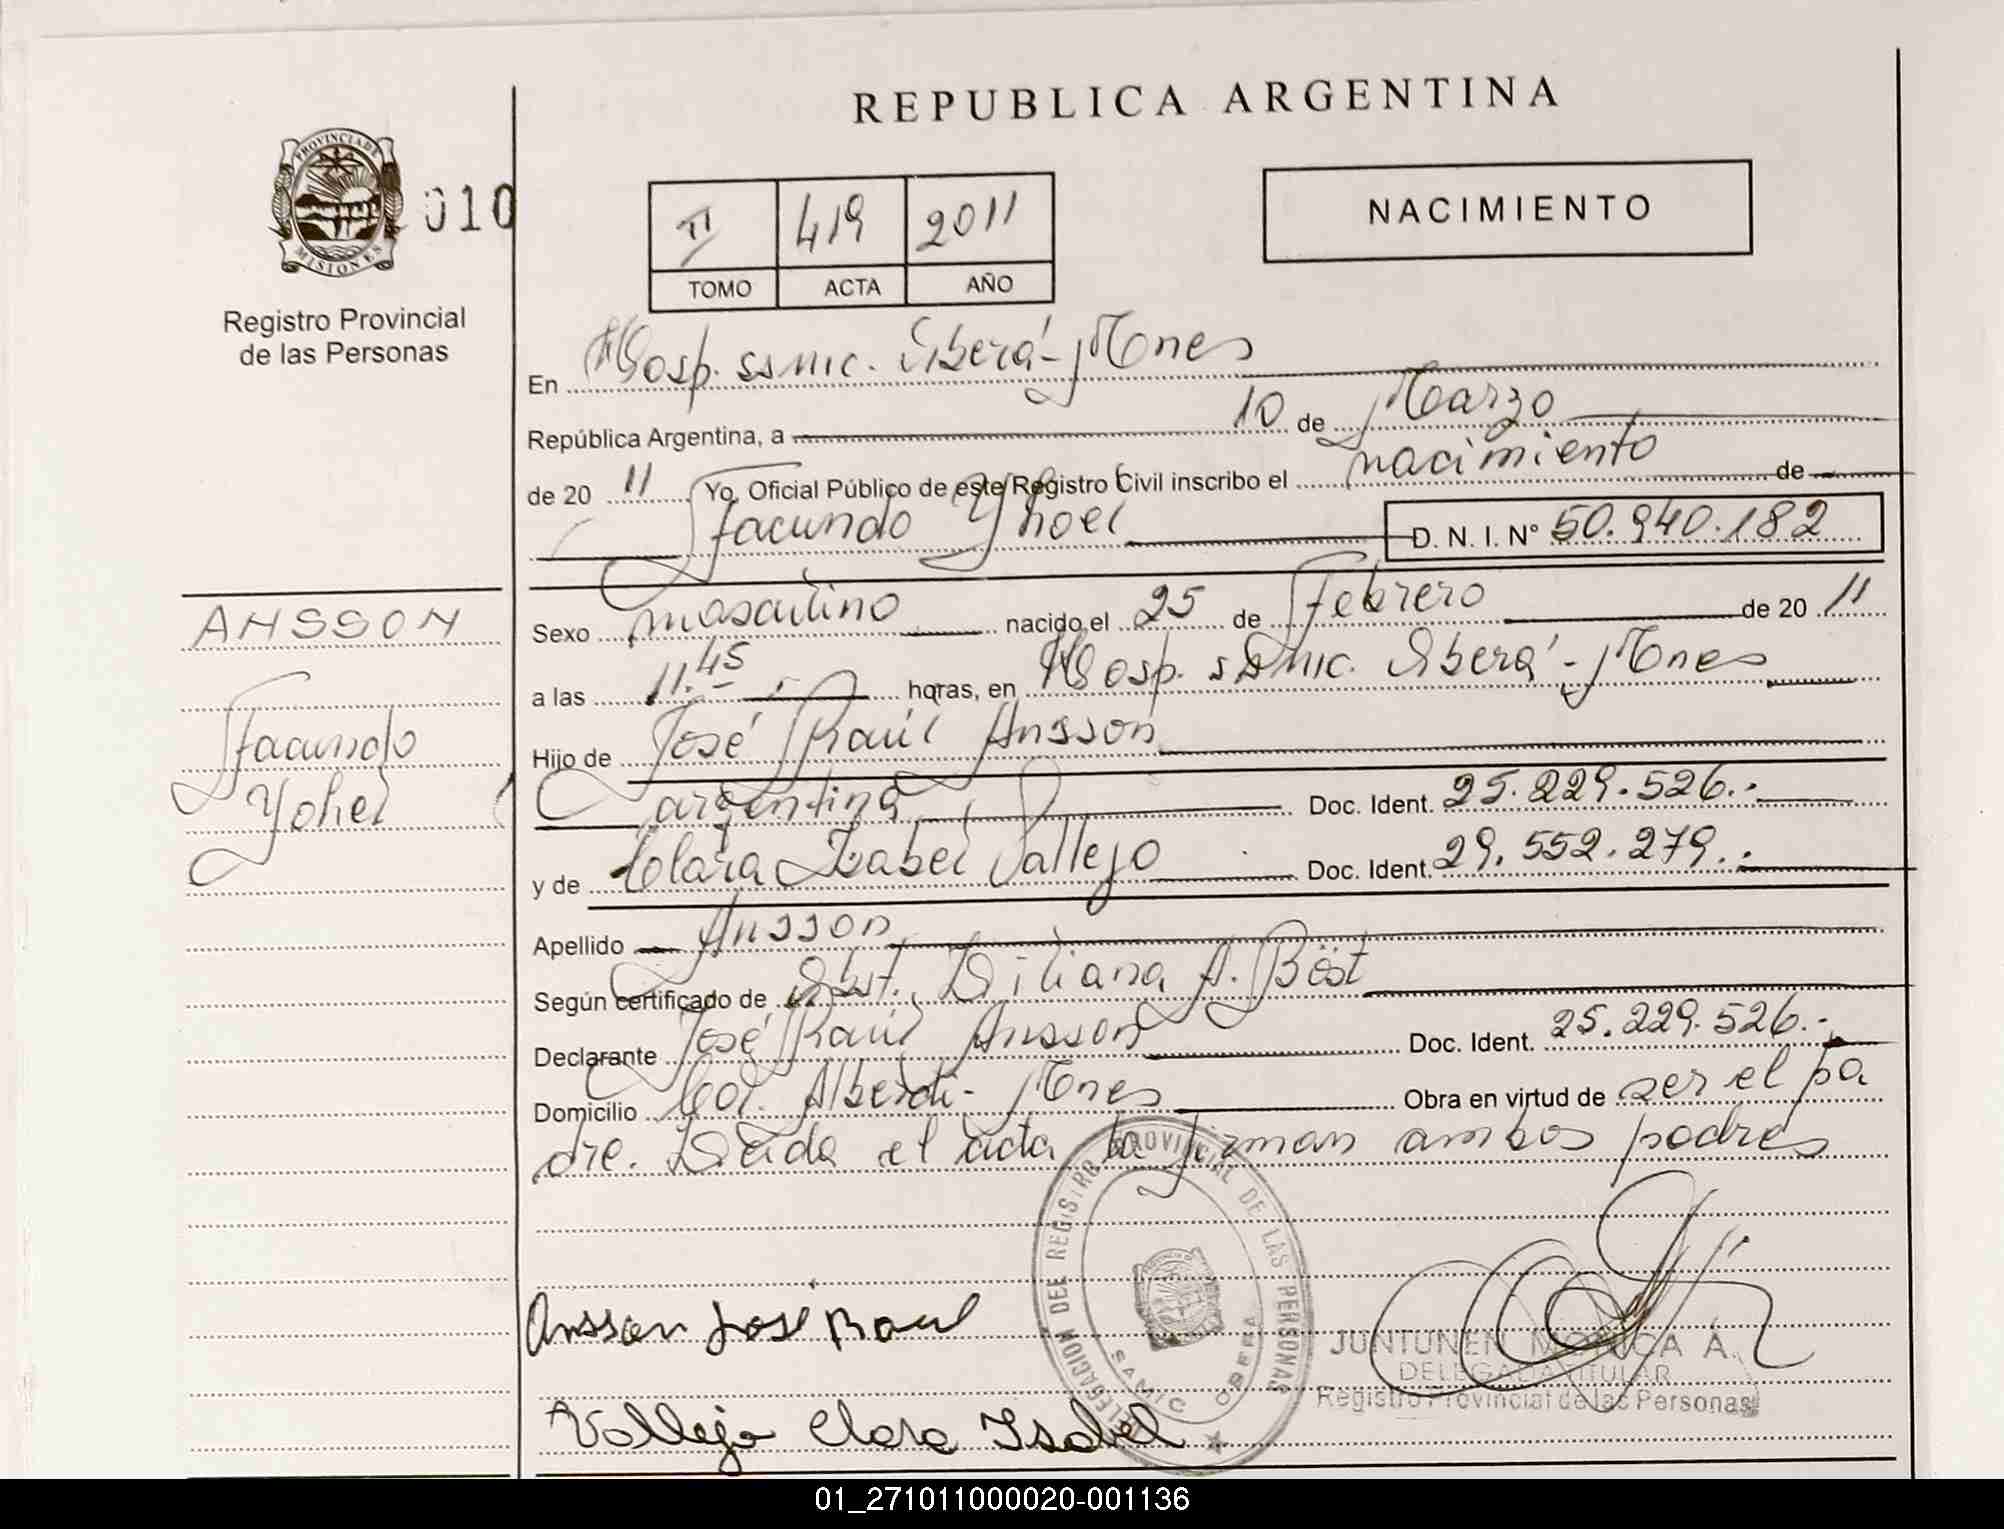 REPUBLICA ARGENTINA
PROVINCIA DE
MISIONES
010
Registro Provincial
de las Personas
II 419 2011
TOMO ACTA AÑO
NACIMIENTO
En Hosp. SSMIC. Oberá - Mnes
República Argentina, a 10 de Marzo
de 20 11 Yo, Oficial Público de este Registro Civil inscribo el nacimiento de
Facundo Yhoel D. N. I. Nº 50.940.182
ANSSON
Facundo
Yohel
Sexo masculino nacido el 25 de Febrero de 20 11
a las 11.45 horas, en Hosp. SSMIC. Oberá - Mnes
Hijo de José Raúl Ansson
argentina Doc. Ident. 25.229.526.-
y de Clara Isabel Vallejo Doc. Ident. 29.552.279.-
Apellido Ansson
Según certificado de Obst. Liliana A. Böst
Declarante José Raúl Ansson Doc. Ident. 25.229.526.-
Domicilio Col. Alberdi - Mnes Obra en virtud de ser el pa
dre. Leída el acta la firman ambos padres
DELEGACION DEL REGISTRO PROVINCIAL DE LAS PERSONAS
SAMIC OBERA
Ansson José Raul
Vallejo Clara Isabel
JUNTUNEN MONICA A.
DELEGADA TITULAR
Registro Provincial de las Personas
01_271011000020-001136